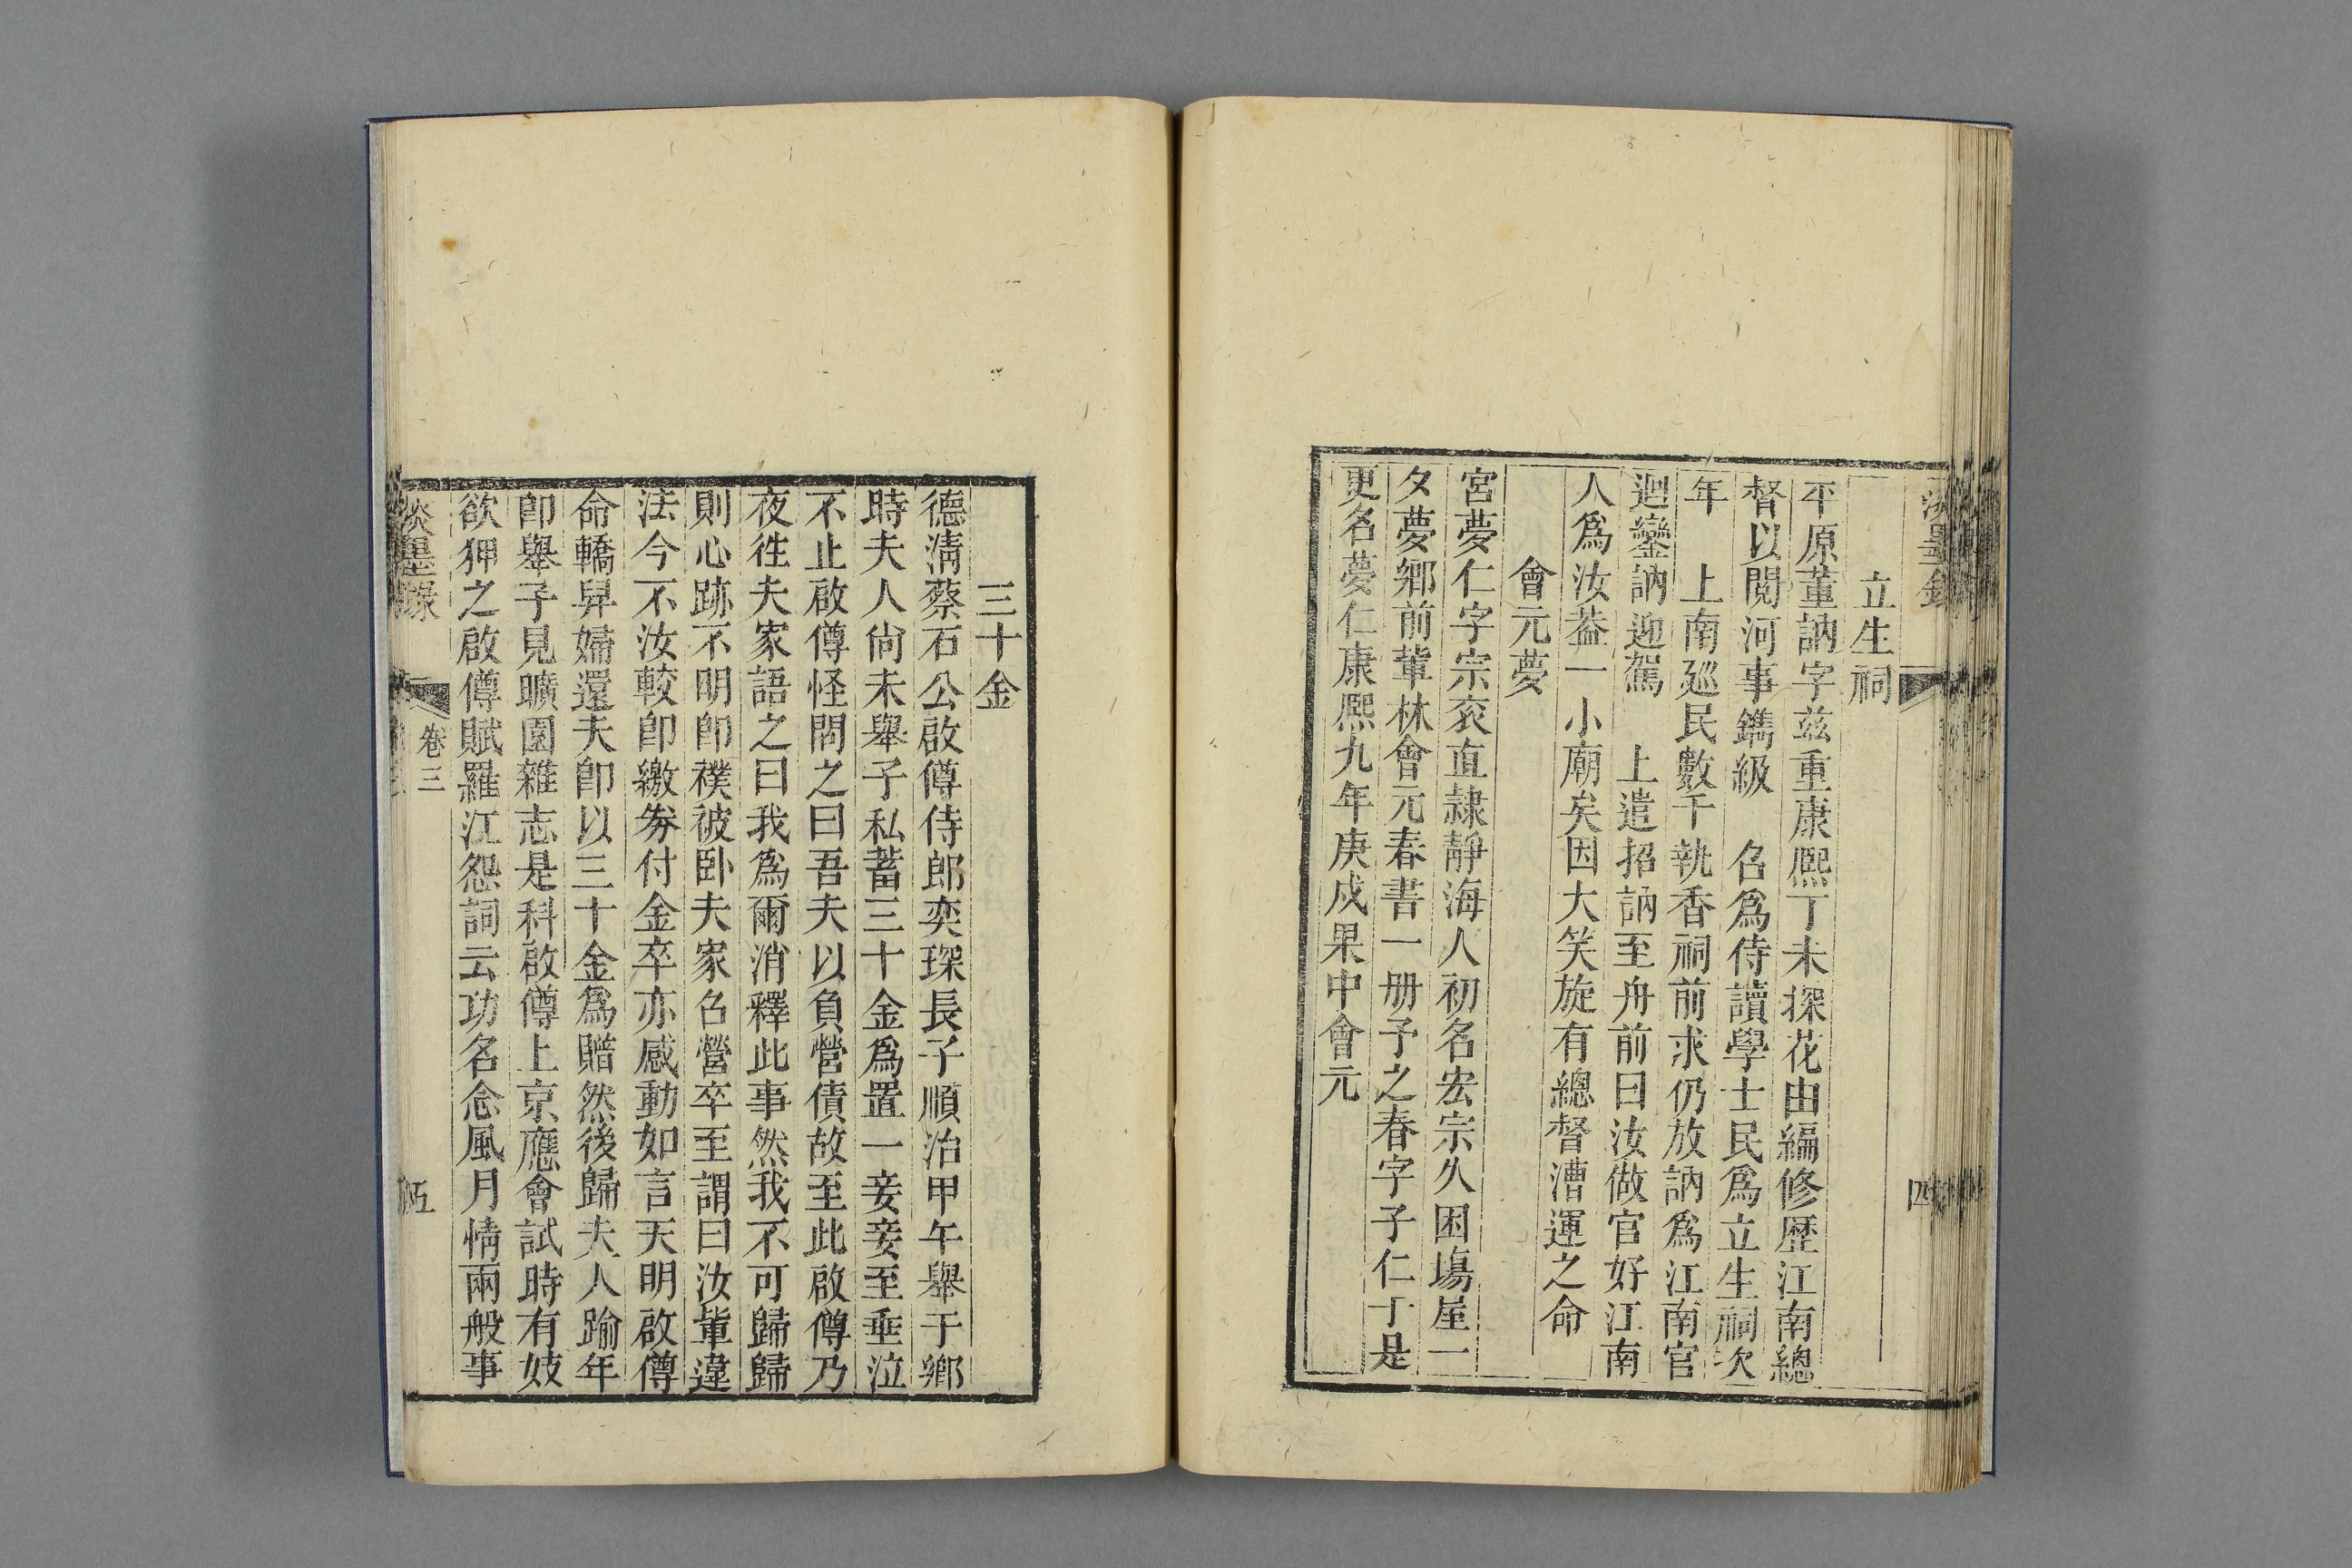 淡墨錄
四
立生祠
平原董訥字茲重康熙丁未探花由編修歴江南總
督以閱河事鐫級 名爲侍讀學士民爲立生祠次
年 上南廵民數千執香祠前求仍放訥爲江南官
迴鑾訥迎駕 上遣招訥至舟前曰汝做官好江南
人爲汝葢一小廟矣因大笑旋有總督漕運之命
會元夢
宮夢仁字宗衮直隷靜海人初名宏宗久困塲屋一
夕夢鄉前輩林會元春書一册予之春字子仁于是
更名夢仁康熙九年庚戍果中會元
三十金
德淸蔡石公啟僔侍郎奕琛長子順治甲午舉于鄉
時夫人尙未舉子私蓄三十金爲置一妾妾至垂泣
不止啟僔怪問之曰吾夫以負營債故至此啟僔乃
夜徃夫家語之曰我爲爾消釋此事然我不可歸歸
則心跡不明卽襆被卧夫家名營卒至謂曰汝軰違
法今不汝較卽繳劵付金卒亦感動如言天明啟僔
命轎舁婦還夫卽以三十金爲贈然後歸夫人踰年
卽舉子見曠園雜志是科啟僔上京應會試時有妓
欲狎之啟僔賦羅江怨詞云功名念風月情兩般事
淡墨錄
卷三
五